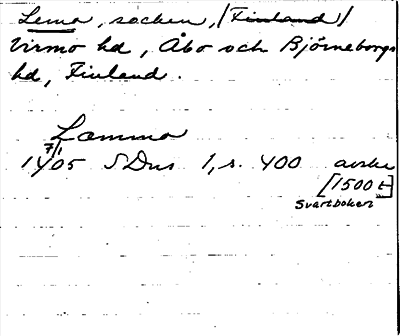 Lema, socken, (Finland)
Virmo hd, Åbo och Björneborgs
hd, Finland.
Lamma
7/1
1405 SDns 1, s. 400 avskr
[1500 t]
Svartboken